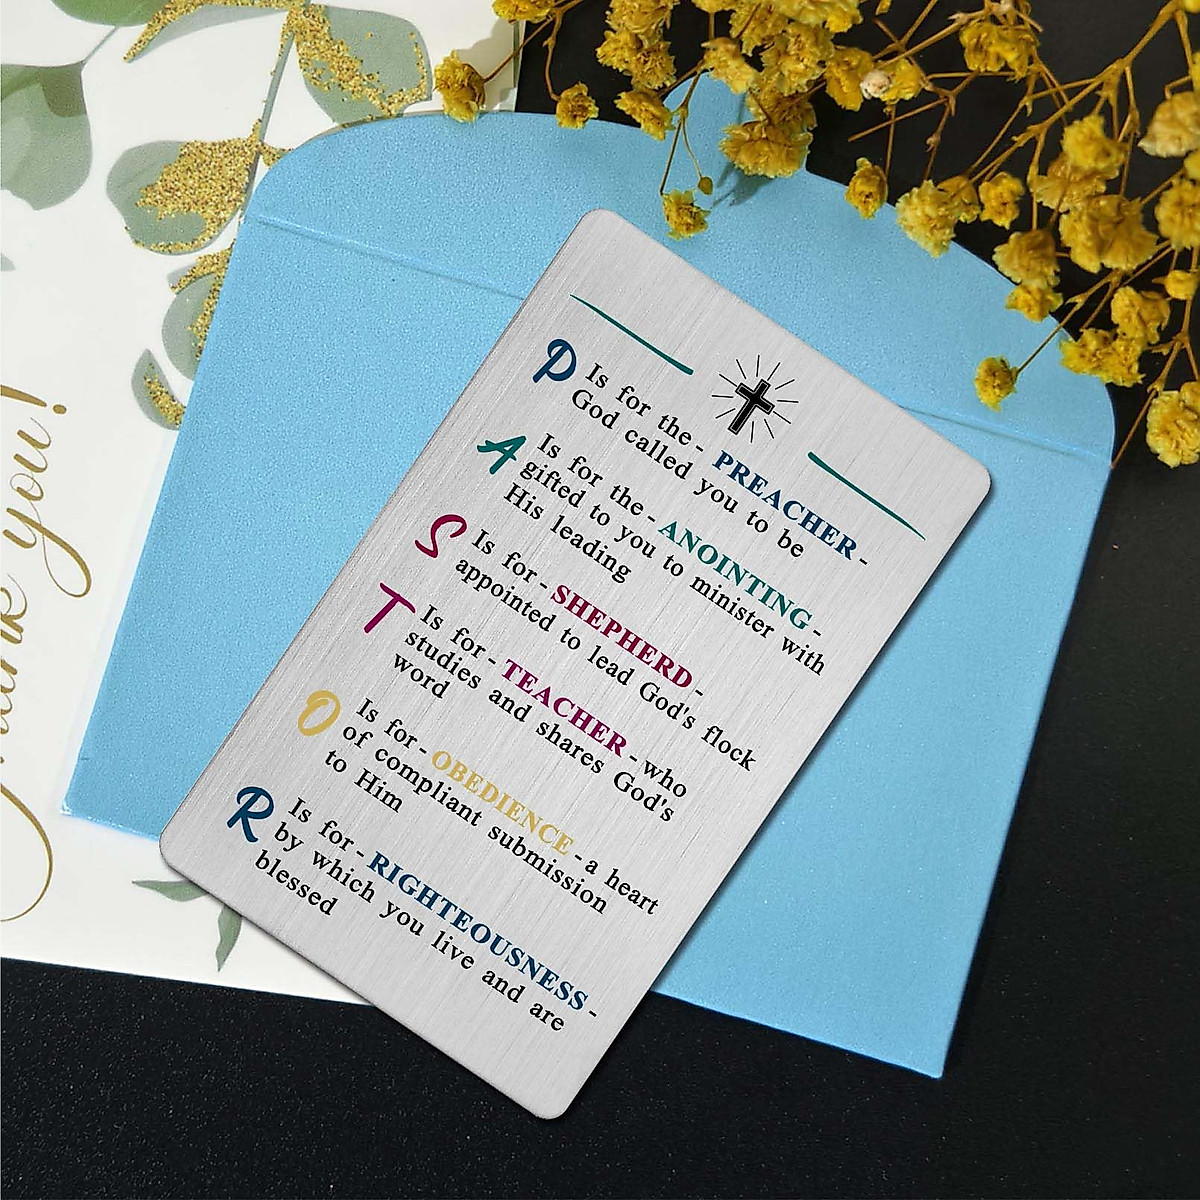 P Is for the - PREACHER -
God called you to be
A Is for the - ANOINTING -
gifted to you to minister with
His leading
S Is for - SHEPHERD -
appointed to lead God's flock
T Is for - TEACHER - who
studies and shares God's
word
O Is for - OBEDIENCE - a heart
of compliant submission
to Him
R Is for - RIGHTEOUSNESS -
by which you live and are
blessed
Thank you!